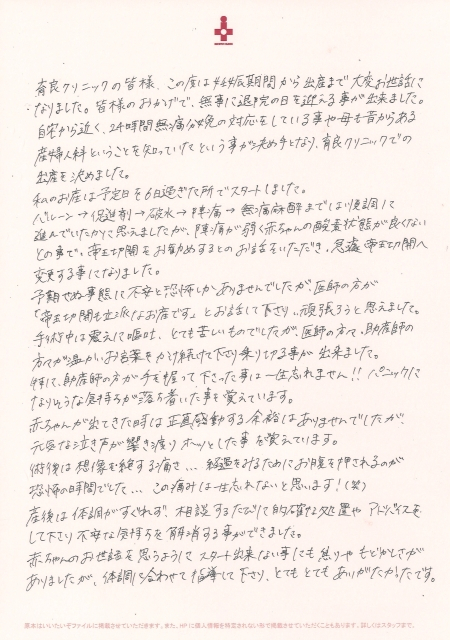 育良クリニックの皆様、この度は妊娠期間から出産まで大変お世話に
なりました。皆様のおかげで、無事に退院の日を迎える事が出来ました。
自宅から近く、24時間無痛分娩の対応をしている事や母も昔からある
産婦人科ということを知っていたという事が決め手となり、育良クリニックでの
出産を決めました。
私のお産は予定日を6日過ぎた所でスタートしました。
バルーン→促進剤→破水→陣痛→無痛麻酔までは順調に
進んでいたかに思えましたが、陣痛が弱く赤ちゃんの酸素状態が良くない
との事で、帝王切開をお勧めするとのお話をいただき、急遽帝王切開へ
変更する事になりました。
予期せぬ事態に不安と恐怖しかありませんでしたが、医師の方が
「帝王切開も立派なお産です」とお話して下さり、頑張ろうと思えました。
手術中は震えに嘔吐、とても苦しいものでしたが、医師の方や、助産師の
方々が温かいお言葉をかけ続けて下さり乗り切る事が出来ました。
特に、助産師の方が手を握って下さった事は一生忘れません!! パニックに
なりそうな気持ちが落ち着いた事を覚えています。
赤ちゃんが出てきた時は正直感動する余裕はありませんでしたが、
元気な泣き声が響き渡りホッとした事を覚えています。
術後は想像を絶する痛さ... 経過をみるためにお腹を押されるのが
恐怖の時間でした... この痛みは一生忘れないと思います!(笑)
産後は体調がすぐれず、相談するたびに的確な処置やアドバイスを
して下さり不安な気持ちを解消する事ができました。
赤ちゃんのお世話を思うようにスタート出来ない事にも焦りやもどかしさが
ありましたが、体調に合わせて指導して下さり、とてもとてもありがたかったです。
原本はいいたいぞファイルに掲載させていただきます。また、HPに個人情報を特定されない形で掲載させていただくこともあります。詳しくはスタッフまで。